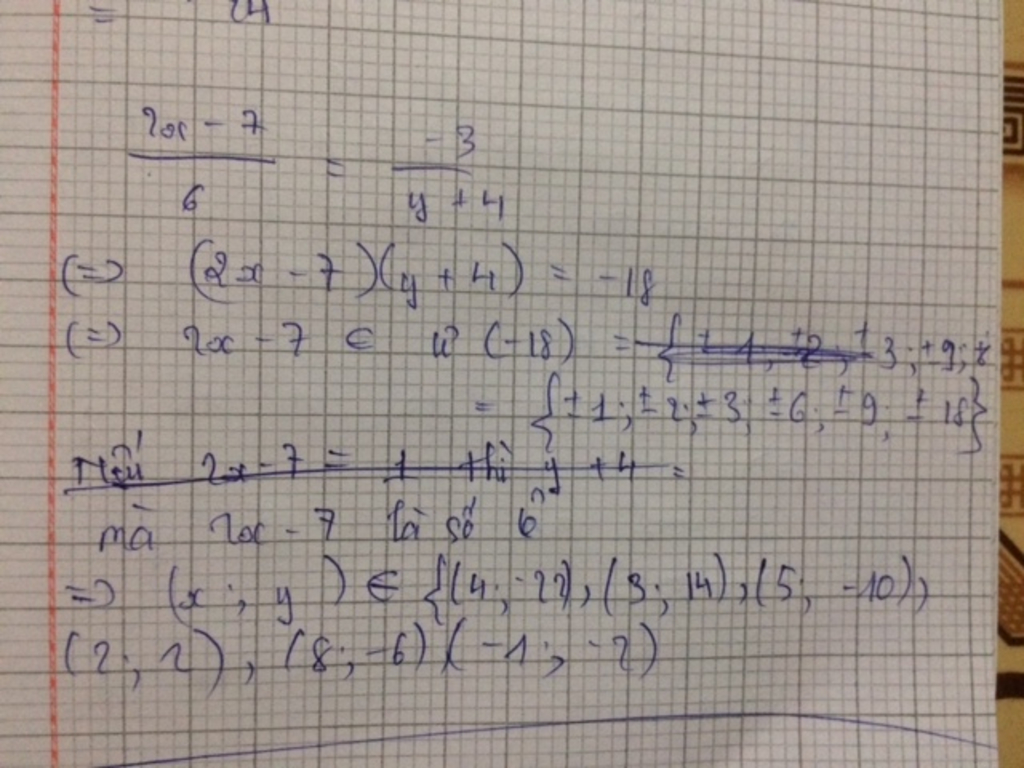 = 24
2x - 7 / 6 = -3 / y + 4
(=) (2x - 7)(y + 4) = -18
(=) 2x - 7 ∈ Ư (-18) = {± 1, ±2, ± 3; ±9; ±
= {± 1; ± 2; ± 3; ± 6; ± 9; ± 18}
Nếu 2x - 7 = 1 thì y + 4 =
mà 2x - 7 là số lẻ
=) (x; y) ∈ {(4; -22), (3; 14), (5; -10),
(2; 2), (8; -6) (-1; -2)